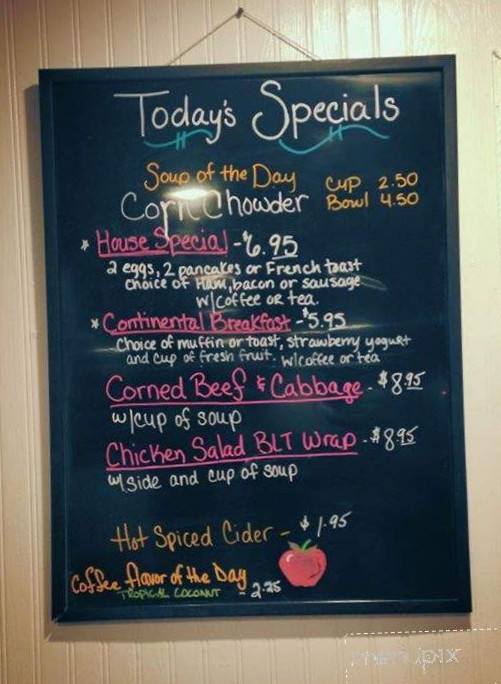 Today's Specials
Soup of the Day Cup 2.50
Corn Chowder Bowl 4.50
* House Special - $6.95
2 eggs, 2 pancakes or French toast
choice of Ham, bacon or sausage
w/coffee or tea.
* Continental Breakfast - $5.95
Choice of muffin or toast, strawberry yogurt
and cup of fresh fruit. w/coffee or tea
Corned Beef & Cabbage - $8.95
w/cup of soup
Chicken Salad BLT Wrap - $8.95
w/side and cup of soup
Hot Spiced Cider - $1.95
Coffee flavor of the Day
TROPICAL COCONUT - 2.25
menupix